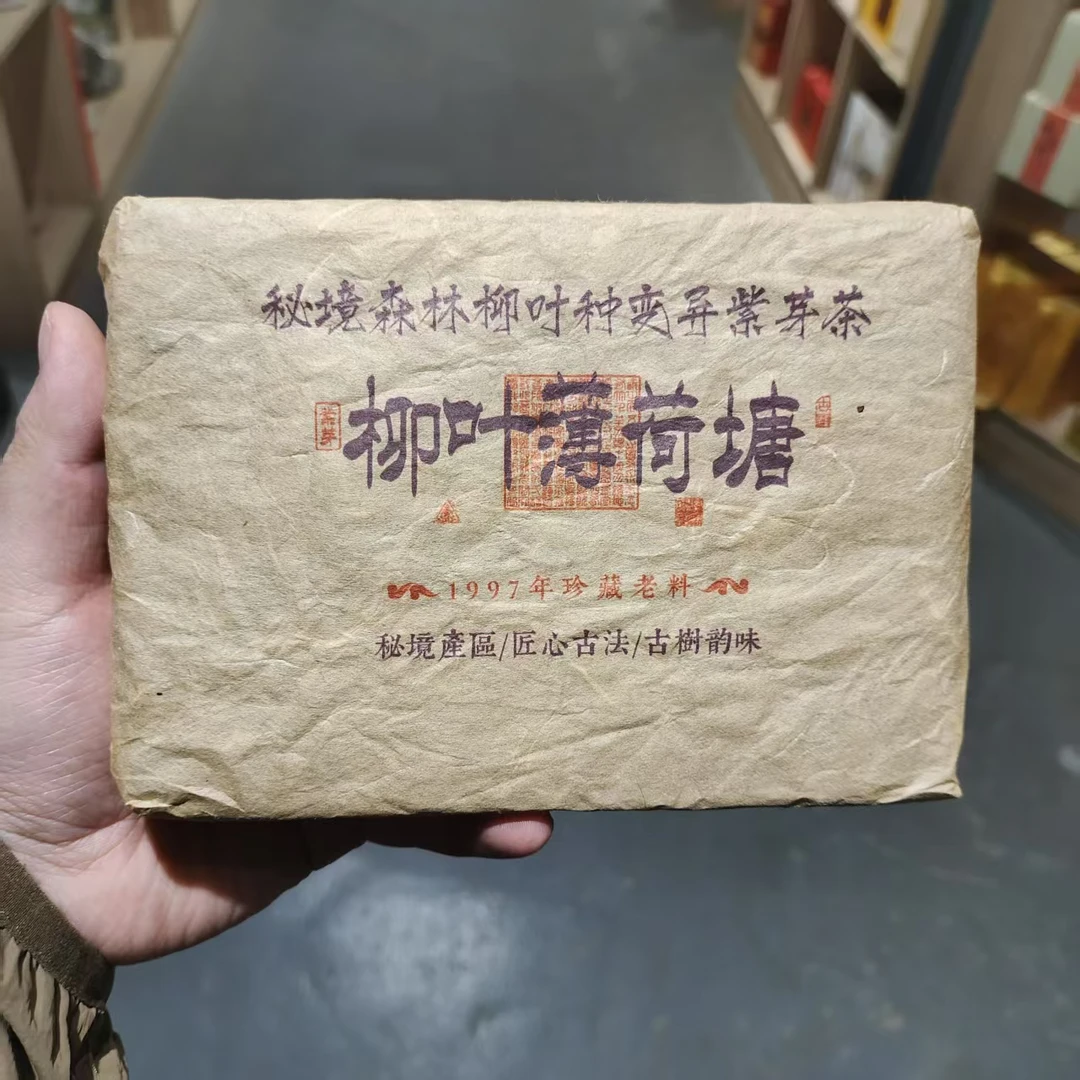 秘境森林柳叶种变异紫芽茶
紫芽
柳叶薄荷塘
1997年珍藏老料
秘境產區/匠心古法/古樹韵味